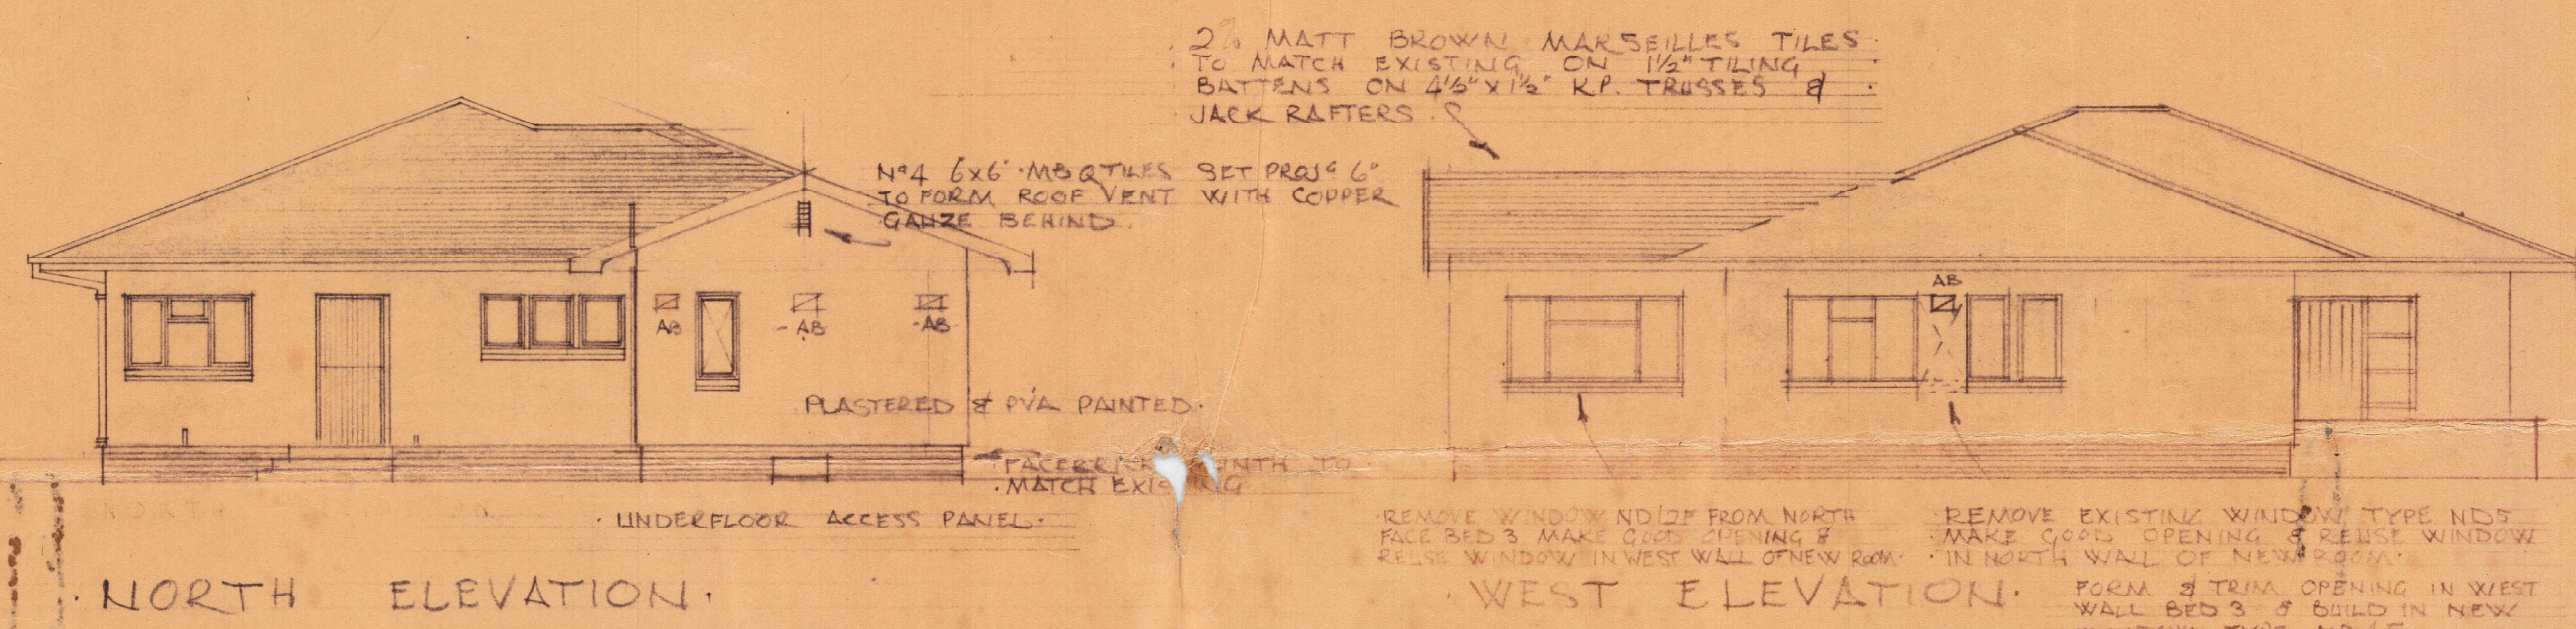 MATT BROWN MARSEILLES TILES
TO MATCH EXISTING ON 1½" TILING
BATTENS ON 4½" X 1½" K.P. TRUSSES &
JACK RAFTERS.
Nº4 6x6" MB QTILES SET PROJG 6"
TO FORM ROOF VENT WITH COPPER
GAUZE BEHIND.
AB
AB
AB
AB
PLASTERED & PVA PAINTED.
TO
MATCH
UNDERFLOOR ACCESS PANEL.
NORTH ELEVATION.
REMOVE WINDOW ND12F FROM NORTH
FACE BED 3 MAKE GOOD OPENING &
REUSE WINDOW IN WEST WALL OF NEW ROOM.
WEST ELEVATION.
REMOVE EXISTING WINDOW TYPE ND5
MAKE GOOD OPENING & REUSE WINDOW
IN NORTH WALL OF NEW ROOM.
FORM & TRIM OPENING IN WEST
WALL BED 3 & BUILD IN NEW